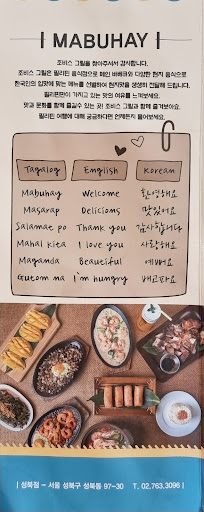 | MABUHAY |
조비스 그릴을 찾아주셔서 감사합니다.
조비스 그릴은 필리핀 음식점으로 메인 바베큐와 다양한 현지 음식으로
한국인의 입맛에 맞는 메뉴를 선별하여 현지맛을 생생히 전달해 드립니다.
필리핀만이 가지고 있는 맛의 여유를 느껴보세요.
맛과 문화를 함께 즐길수 있는 곳! 조비스 그릴과 함께 즐겨보아요.
필리핀 여행에 대해 궁금하다면 언제든지 물어보세요.
Tagalog English Korean
Mabuhay Welcome 환영해요
Masarap Delicious 맛있어요
Salamat po Thank you 감사합니다
Mahal kita I love you 사랑해요
Maganda Beautiful 예뻐요
Gutom na I'm hungry 배고파요
| 성북점 - 서울 성북구 성북동 97-30 T. 02.763.3096 |